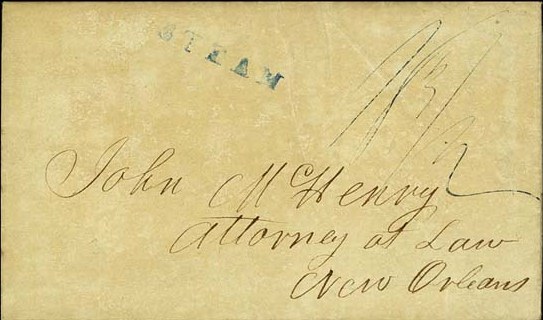 STEAM
John McHenry
Attorney at Law
New Orleans